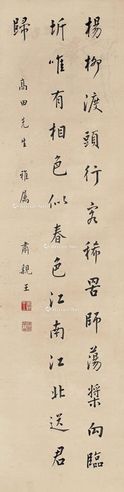 楊柳渡頭行客稀罟師蕩槳向臨
圻唯有相色似春色江南江北送君
歸
高田先生雅属
肅親王